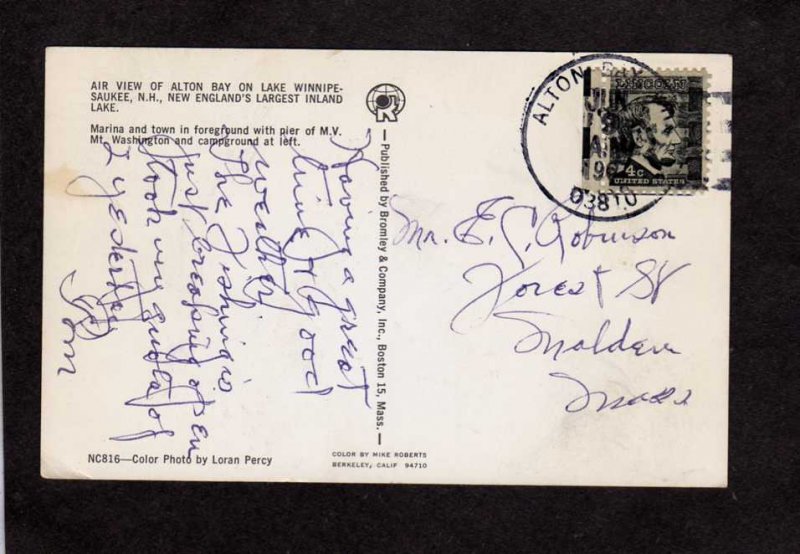 AIR VIEW OF ALTON BAY ON LAKE WINNIPE-
SAUKEE, N.H., NEW ENGLAND'S LARGEST INLAND
LAKE.
Marina and town in foreground with pier of M.V.
Mt. Washington and campground at left.
Having a great
time & good
weather
The Fishing is
just
took our quota of
yesterday
Tom
NC816—Color Photo by Loran Percy
— Published by Bromley & Company, Inc., Boston 15, Mass. —
COLOR BY MIKE ROBERTS
BERKELEY, CALIF 94710
ALTON BAY
JUN
9
AM
03810
LINCOLN
4c
UNITED STATES
Mr. E. C. Robinson
Forest St
Malden
Mass